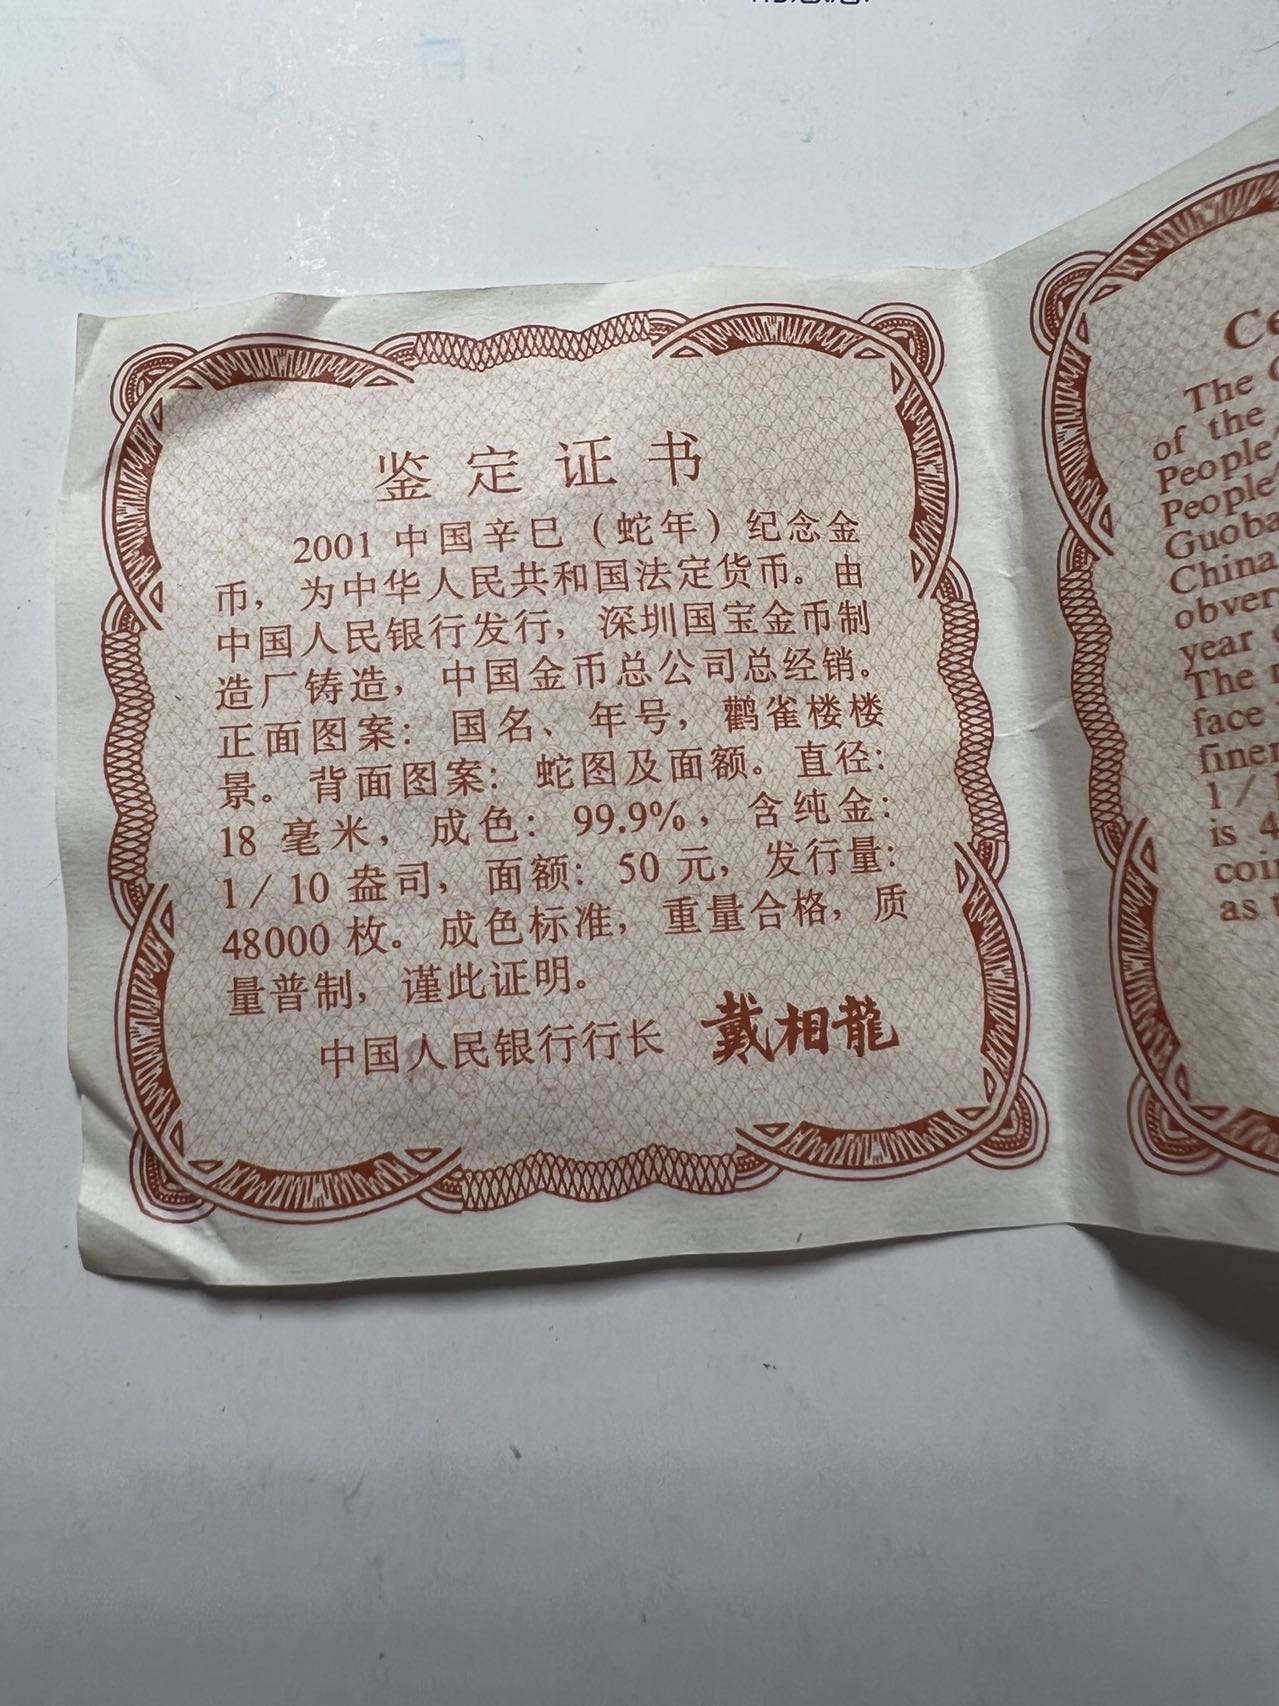 鉴定证书
2001 中国辛巳（蛇年）纪念金
币，为中华人民共和国法定货币。由
中国人民银行发行，深圳国宝金币制
造厂铸造，中国金币总公司总经销。
正面图案：国名、年号，鹳雀楼楼
景。背面图案：蛇图及面额。直径：
18 毫米，成色：99.9%，含纯金：
1/10 盎司，面额：50 元，发行量：
48000 枚。成色标准，重量合格，质
量普制，谨此证明。
中国人民银行行长 戴相龍
Ce
The
of the
People
People'
Guoba
China
obver
year
The
face
finen
1/1
is 4
coin
as t